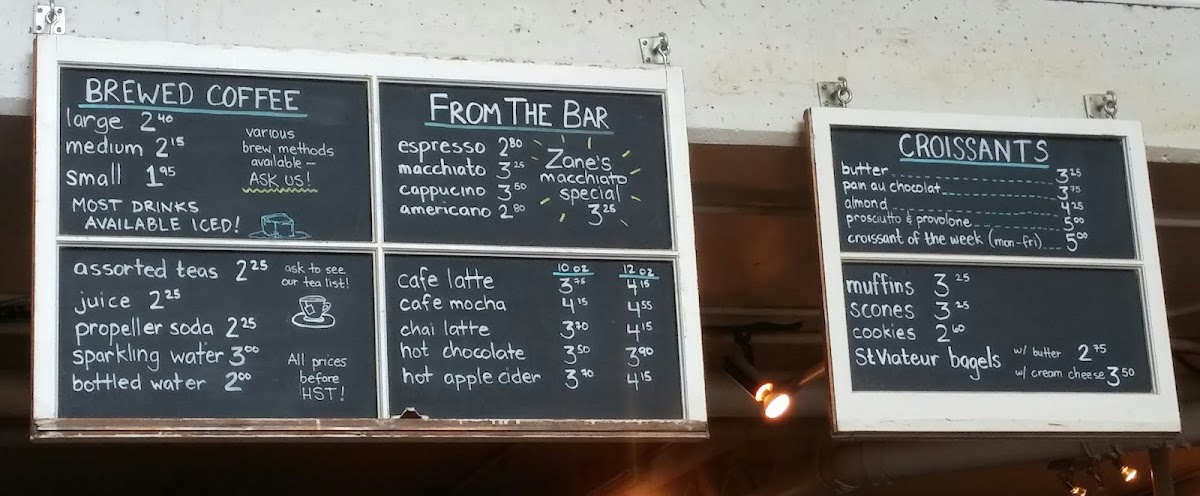 BREWED COFFEE
large 2 40
medium 2 15
small 1 95
various
brew methods
available –
ASK US!
MOST DRINKS
AVAILABLE ICED!
assorted teas 2 25
juice 2 25
propeller soda 2 25
sparkling water 3 00
bottled water 2 00
ask to see
our tea list!
All prices
before
HST!
FROM THE BAR
espresso 2 80
macchiato 3 25
cappucino 3 50
americano 2 80
Zane's
macchiato
special
3 25
10 oz 12 oz
cafe latte 3 75 4 15
cafe mocha 4 15 4 55
chai latte 3 70 4 15
hot chocolate 3 50 3 90
hot apple cider 3 70 4 15
CROISSANTS
butter 3 25
pan au chocolat 3 75
almond 4 25
prosciutto & provolone 5 00
croissant of the week (mon-fri) 5 00
muffins 3 25
scones 3 25
cookies 2 60
St Viateur bagels w/ butter 2 75
w/ cream cheese 3 50